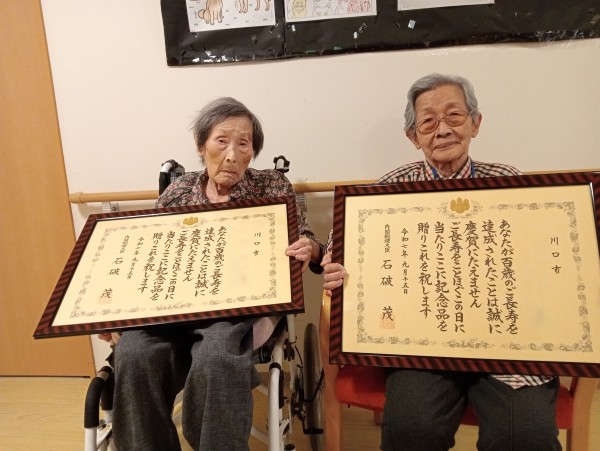 川口市
あなたが百歳のご長寿を
達成されたことは誠に
慶賀にたえません
ご長寿をことほぐこの日に
当たりここに記念品を
贈りこれを祝します
令和七年九月十五日
内閣総理大臣 石破 茂
川口市
あなたが百歳のご長寿を
達成されたことは誠に
慶賀にたえません
ご長寿をことほぐこの日に
当たりここに記念品を
贈りこれを祝します
令和七年九月十五日
内閣総理大臣 石破 茂